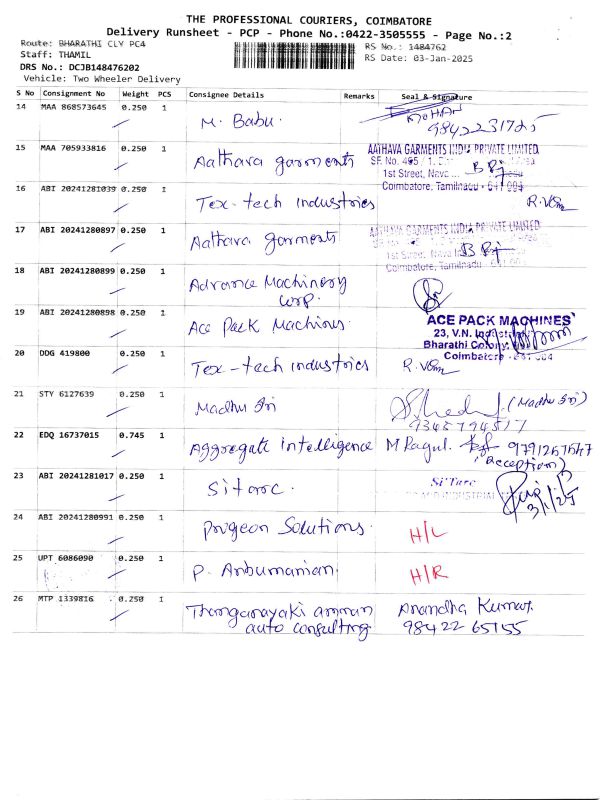 THE PROFESSIONAL COURIERS, COIMBATORE
Delivery Runsheet - PCP - Phone No.:0422-3505555 - Page No.:2
Route: BHARATHI CLY PC4
RS No.: 1484762
Staff: THAMIL
RS Date: 03-Jan-2025
DRS No.: DCJB148476202
Vehicle: Two Wheeler Delivery
S No Consignment No Weight PCS Consignee Details Remarks Seal & Signature
14 MAA 868573645 0.250 1 M. Babu. MOHAN
9842231725
15 MAA 705933816 0.250 1 Aathava garments AATHAVA GARMENTS INDIA PRIVATE LIMITED
SF. No. 495 / 1.
1st Street, Nava
Coimbatore, Tamilnadu - 641 004
16 ABI 20241281039 0.250 1 Tex-tech industries
17 ABI 20241280897 0.250 1 Aathava garments AATHAVA GARMENTS INDIA PRIVATE LIMITED
1st Street, Nava
Coimbatore, Tamilnadu
18 ABI 20241280899 0.250 1 Advance Machinery
Corp.
19 ABI 20241280898 0.250 1 Ace Pack Machines. ACE PACK MACHINES
23, V.N. Industrial
Bharathi Colony,
Coimbatore - 641 004
20 DDG 419800 0.250 1 Tex-tech industries
21 STY 6127639 0.250 1 Madhu Sri (Madhu Sri)
9345794517
22 EDQ 16737015 0.745 1 Aggregate intelligence M Ragul. 9791267547
(reception)
23 ABI 20241281017 0.250 1 Sitarc. Si'Tarc
3/1/25
24 ABI 20241280991 0.250 1 Progeon Solutions. H/L
25 UPT 6086090 0.250 1 P. Anbumanian. H/R
26 MTP 1339816 0.250 1 Thanganayaki amman Anandha Kumar.
auto consulting 98422 65155